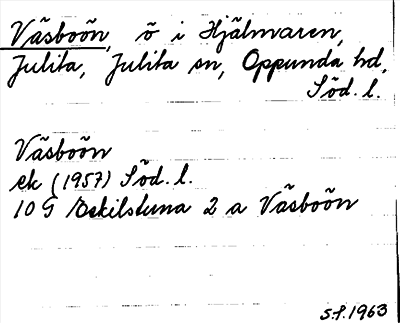 Väsboön, ö i Hjälmaren,
Julita, Julita sn, Oppunda hd,
Söd. l.
Väsboön
ek (1957) Söd. l.
10 G Eskilstuna 2 a Väsboön
S.f. 1963